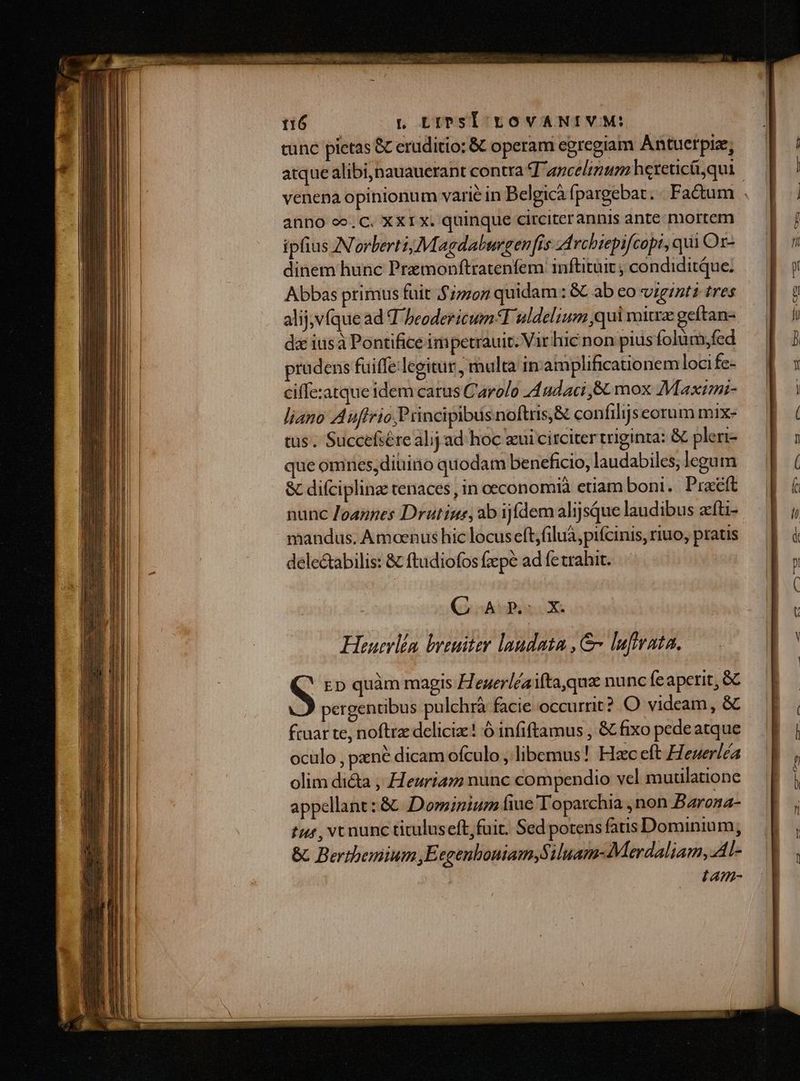 116 L. LIPSI LOVANIVM:
tunc pietas & eruditio: & operam egregiam Antuerpiæ,
atque alibi, nauauerant contra Tancelinum hereticū, qui
venena opinionum variè in Belgicâ spargebat. Factum
anno ∞.C. XXIX. quinque circiter annis ante mortem
ipsius Norberti, Magdaburgensis Archiepiscopi, qui Or-
dinem hunc Præmonstratensem instituit, condiditque.
Abbas primus fuit Simon quidam: & ab eo viginti tres
alij, vsque ad Theodericum Tuldelium, qui mitræ gestan-
dæ ius à Pontifice impetrauit. Vir hic non pius solùm, sed
prudens fuisse legitur, multa in amplificationem loci fe-
cisse: atque idem carus Carolo Audaci, & mox Maximi-
liano Austrio, Principibus nostris, & consilijs eorum mix-
tus. Successêre alij ad hoc æui circiter triginta: & pleri-
que omnes, diuino quodam beneficio, laudabiles, legum
& disciplinæ tenaces, in œconomiâ etiam boni. Præest
nunc Ioannes Drutius, ab ijsdem alijsque laudibus æsti-
mandus. Amœnus hic locus est, siluâ, piscinis, riuo, pratis
delectabilis: & studiosos sæpè ad se trahit.
CAP. X.
Heuerléa breuiter laudata, & lustrata.
SED quàm magis Heuerléa ista, quæ nunc se aperit, &
pergentibus pulchrâ facie occurrit? O videam, &
fruar te, nostræ deliciæ! ô insistamus, & fixo pede atque
oculo, pænè dicam osculo, libemus! Hæc est Heuerléa
olim dicta, Heuriam nunc compendio vel mutilatione
appellant: & Dominium siue Toparchia, non Barona-
tus, vt nunc titulus est, fuit. Sed potens satis Dominium,
& Berthemium, Eegenhouiam, Siluam-Merdaliam, Al-
tam-